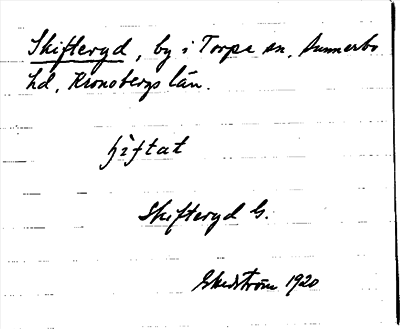 Skifteryd, by i Torpa sn, Sunnerbo
hd, Kronobergs län.
Skifteryd G.
Ekedström 1920